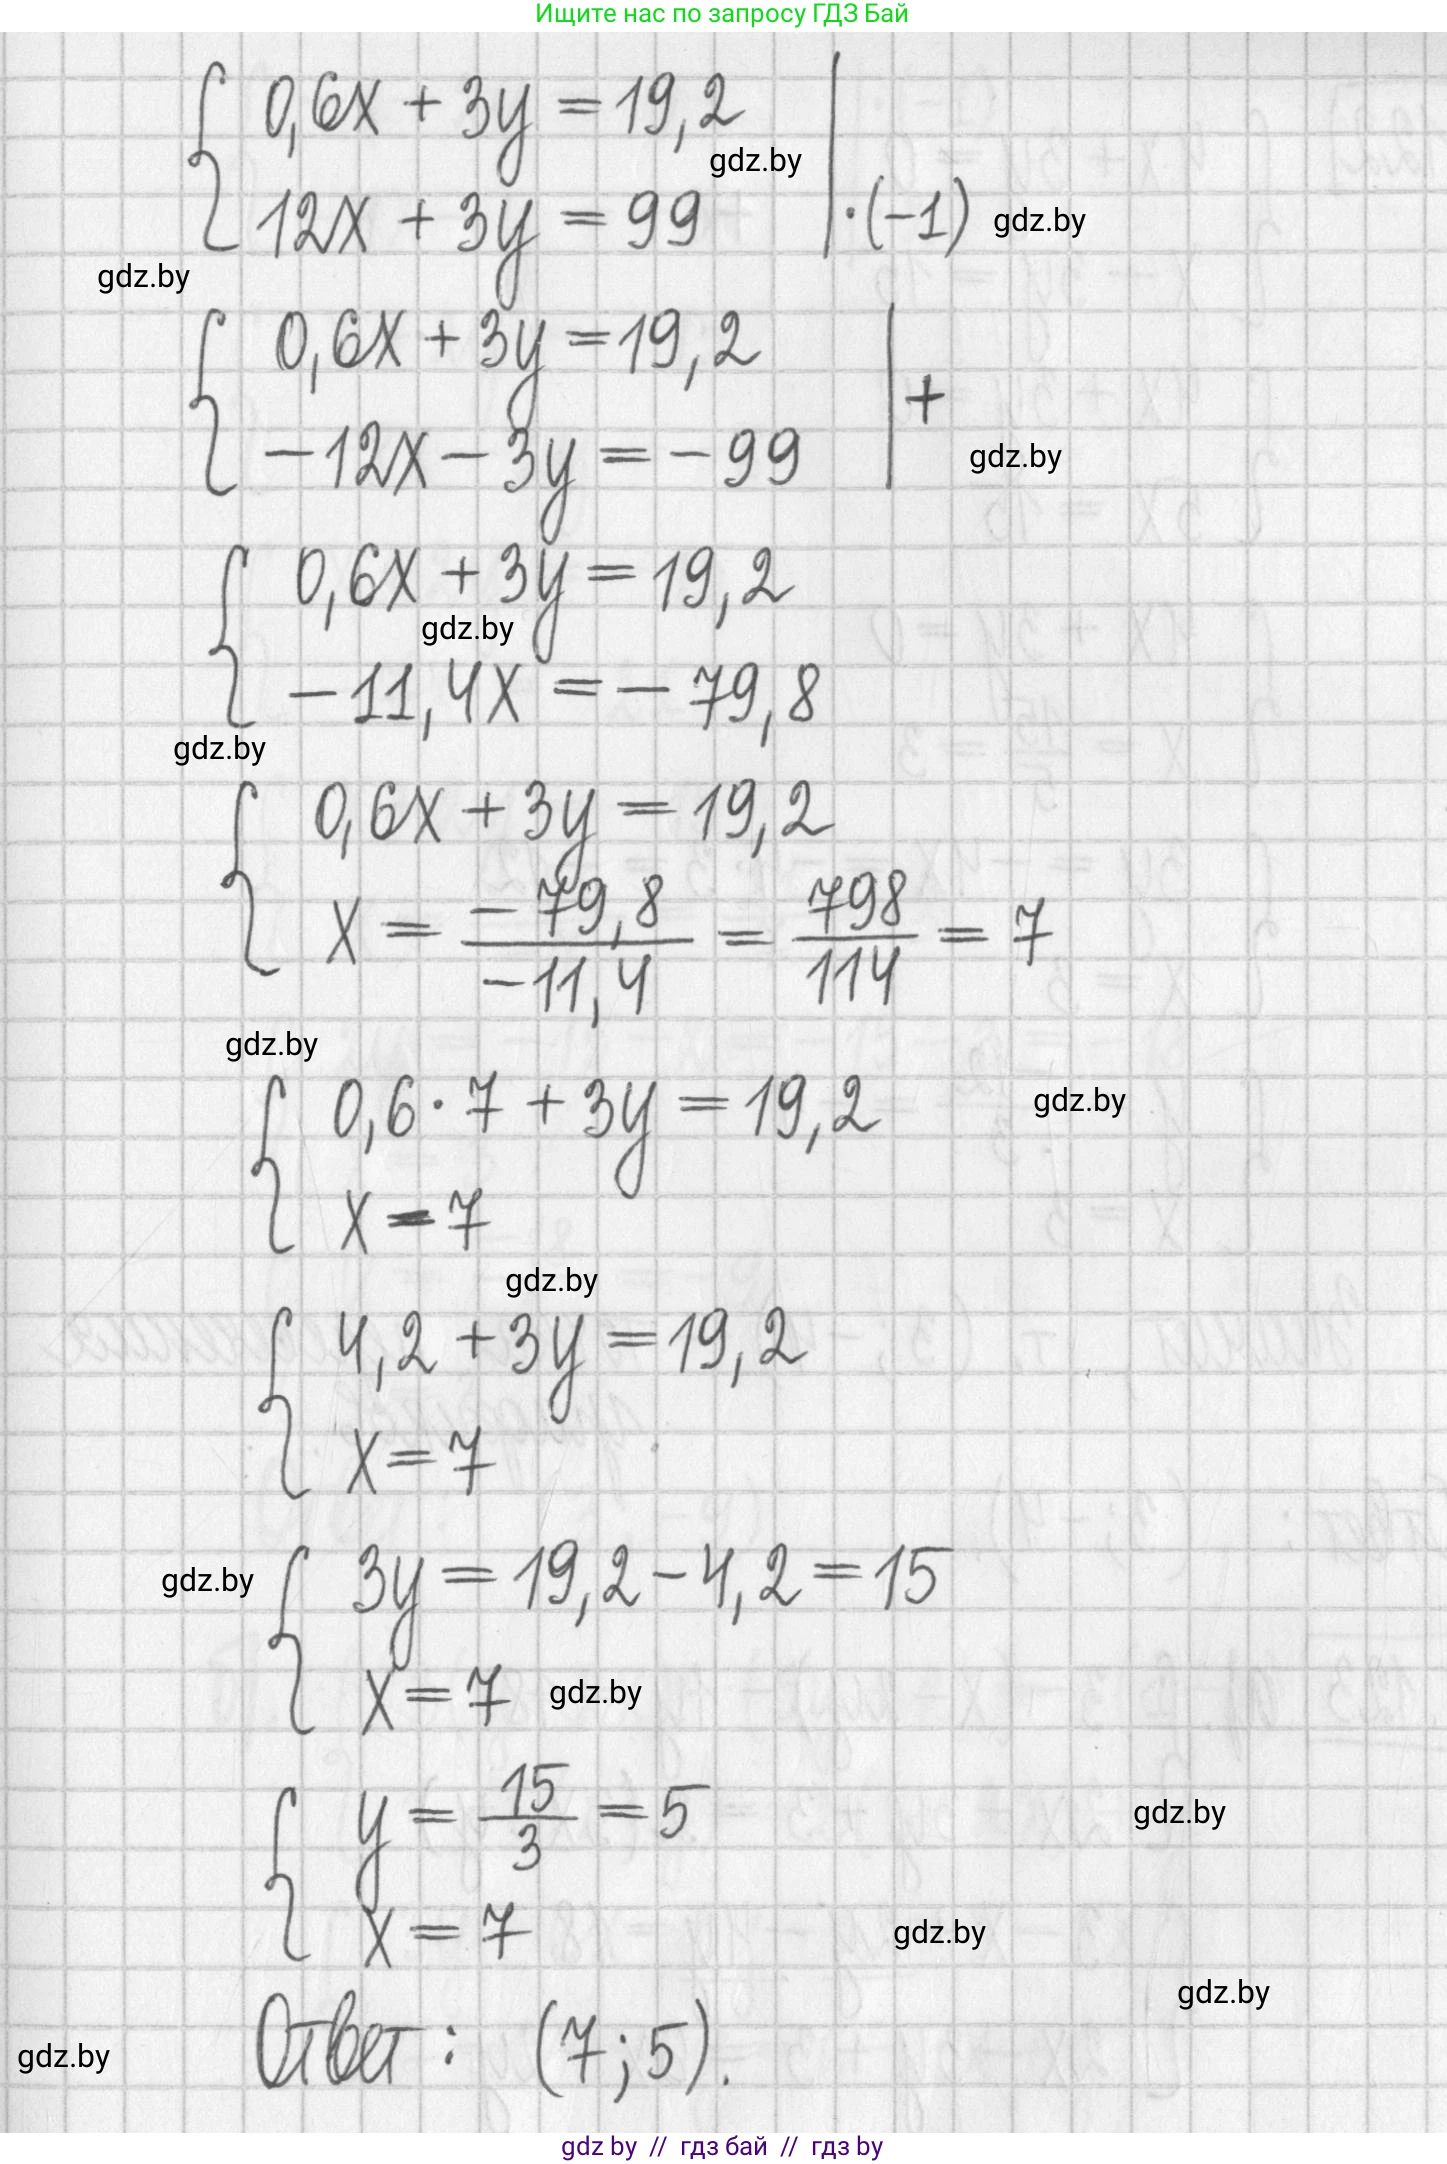 Ищите нас по запросу ГДЗ Бай
0,6x + 3y = 19,2
gdz.by
12x + 3y = 99 | ·(-1) gdz.by
gdz.by
0,6x + 3y = 19,2
| +
-12x - 3y = -99 gdz.by
0,6x + 3y = 19,2
gdz.by
-11,4x = -79,8
gdz.by
0,6x + 3y = 19,2
x = -79,8/-11,4 = 798/114 = 7
gdz.by
0,6 · 7 + 3y = 19,2 gdz.by
x = 7
gdz.by
4,2 + 3y = 19,2
x = 7
gdz.by 3y = 19,2 - 4,2 = 15
x = 7 gdz.by
y = 15/3 = 5 gdz.by
x = 7 gdz.by
gdz.by
gdz.by Ответ: (7; 5).
gdz by // гдз бай // гдз by